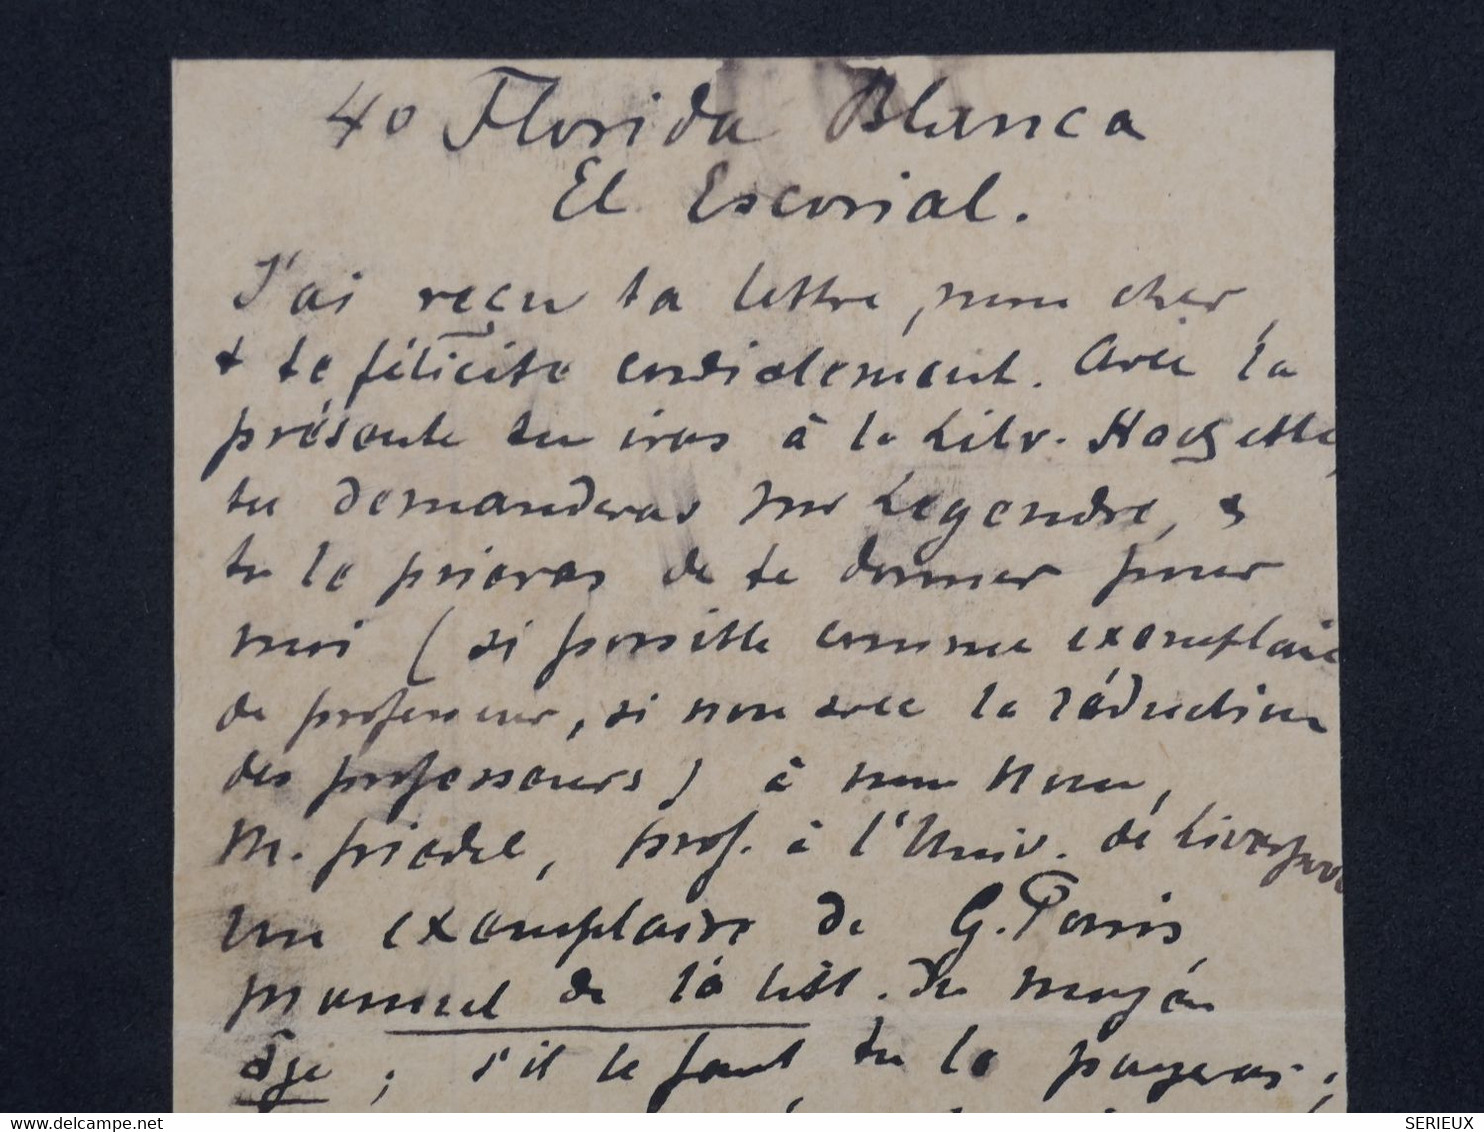 40 Florida Blanca
El Escorial.
J'ai reçu ta lettre, mon cher,
& te félicite cordialement. Avec la
présente tu iras à la Libr. Hachette,
tu demanderas Mr Legendre, &
tu le prieras de te donner pour
moi (si possible comme exemplaire
de professeur, si non avec la réduction
des professeurs) à mon nom,
M. Friedel, prof. à l'Univ. de Liverpool
un exemplaire de G. Paris
manuel de la litt. du moyen
âge ; s'il le faut tu le payeras ;
www.delcampe.net
SERIEUX